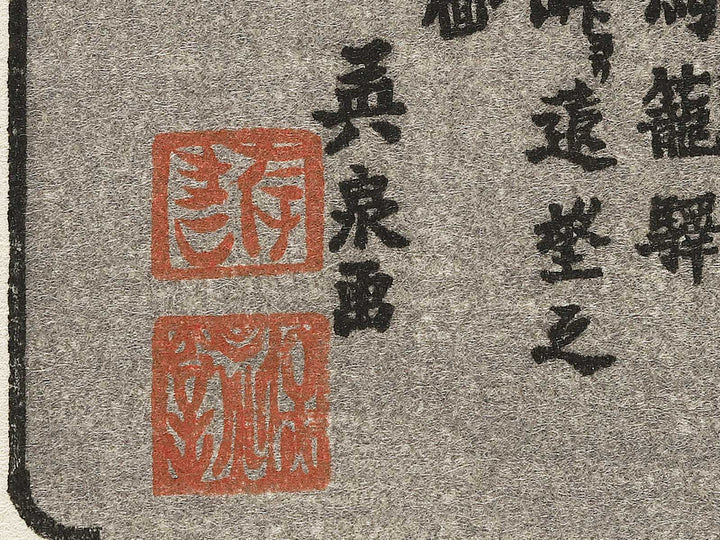 馬籠驛
峠ヨリ遠望之
圖
英泉画